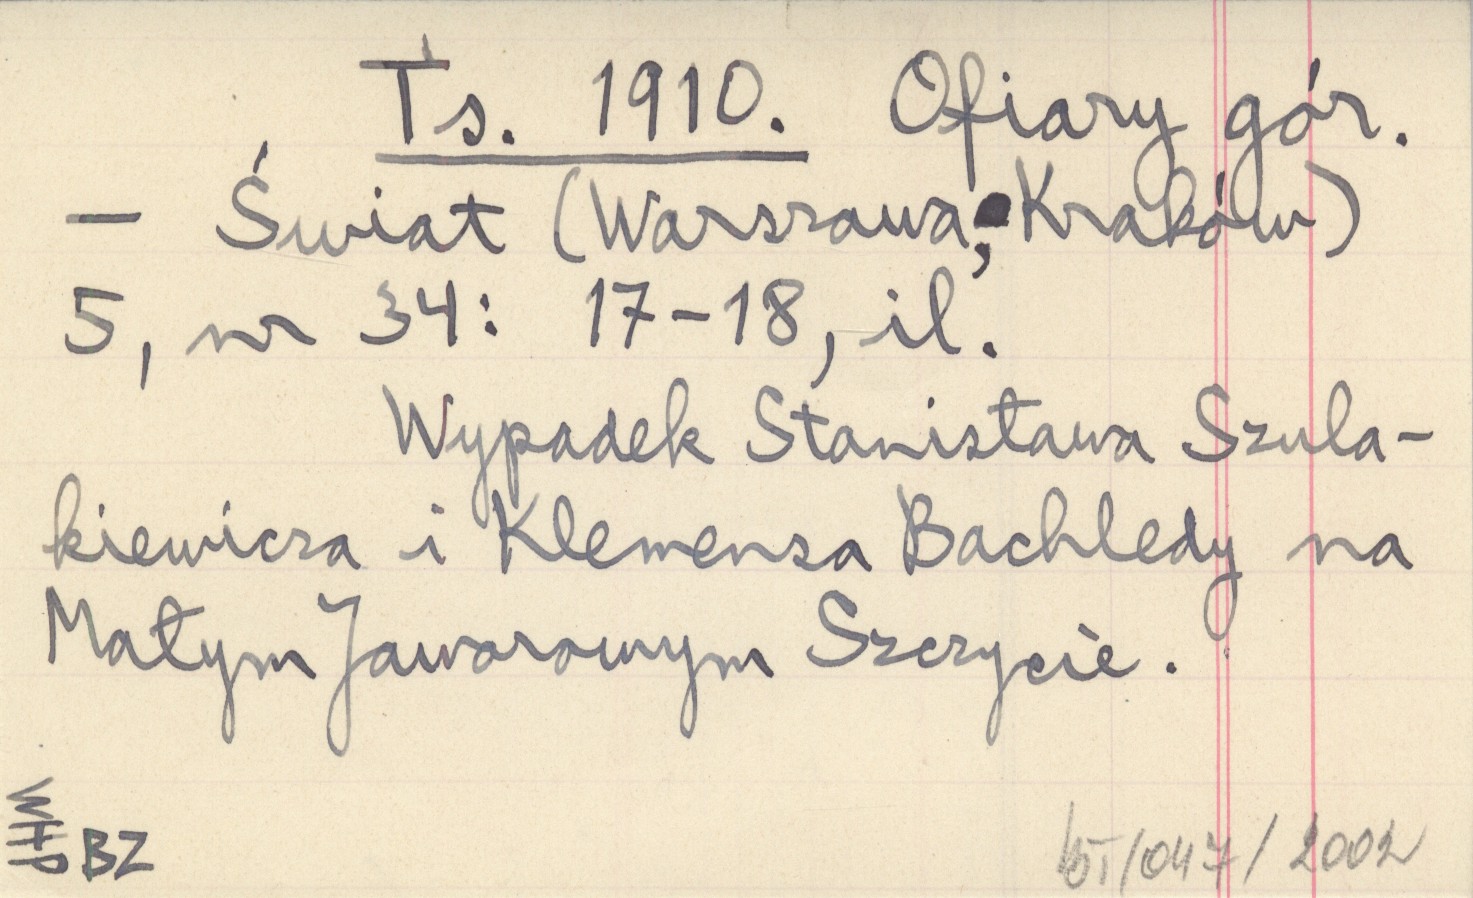 Ts. 1910. Ofiary gór.
— Świat (Warszawa; Kraków)
5, nr 34: 17-18, il.
Wypadek Stanisława Szula-
kiewicza i Klemensa Bachledy na
Małym Jaworowym Szczycie.
WHP
BZ
/047/2002